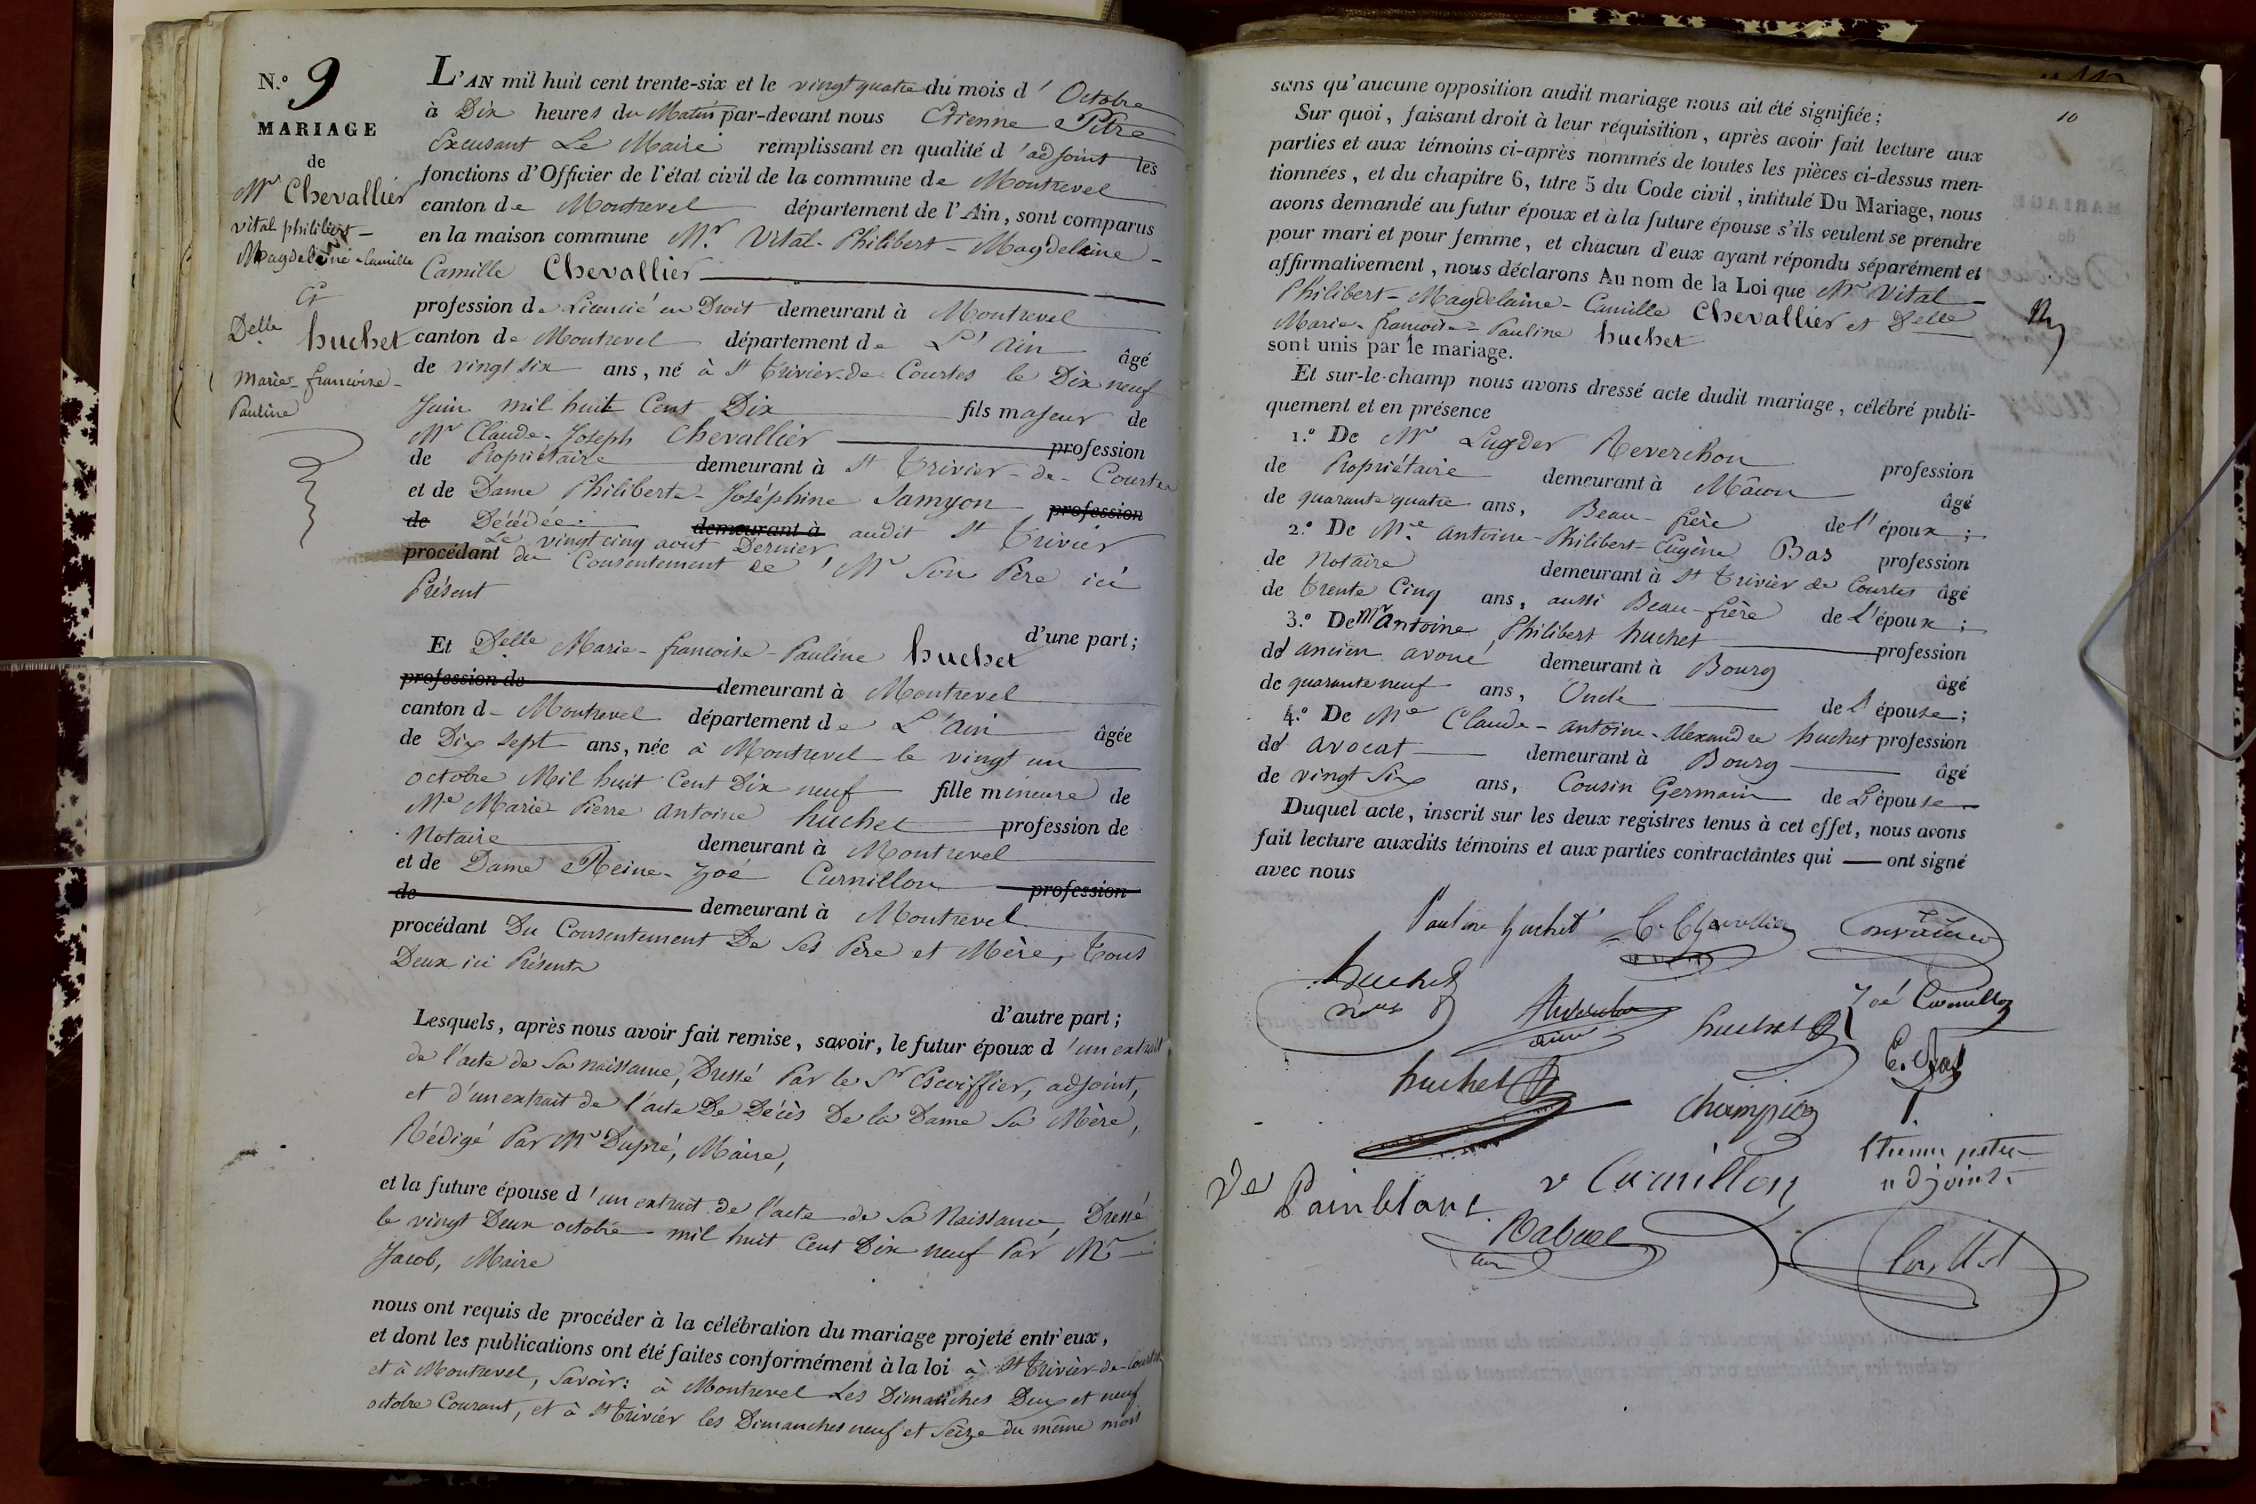 N.º 9
MARIAGE
de
Mr Chevallier
vital philibert-
Magdeleine-Camille
Et
Delle huchet
Marie-francoise-
Pauline
L'AN mil huit cent trente-six et le vingt quatre du mois d'Octobre
à Dix heures du Matin par-devant nous Etienne Pitre
Excusant Le Maire remplissant en qualité d'adjoint les
fonctions d'Officier de l'état civil de la commune de Montrevel
canton de Montrevel département de l'Ain, sont comparus
en la maison commune Mr. Vital-Philibert-Magdelaine-
Camille Chevallier
profession de Licencié en Droit demeurant à Montrevel
canton de Montrevel département de L'ain âgé
de vingt six ans, né à St Trivier-de-Courtes le Dix neuf
Juin mil huit Cent Dix fils majeur de
Mr Claude-Joseph Chevallier profession
de Propriétaire demeurant à St Trivier-de-Courtes
et de Dame Philiberte-Joséphine Jamyon profession
de Décédée demeurant à audit St Trivier
Le vingt cinq aout Dernier
procédant du Consentement de Mr Son Père ici
Présent
d'une part;
Et Delle Marie-francoise-Pauline huchet
profession de demeurant à Montrevel
canton d- Montrevel département de L'ain âgée
de Dix sept ans, née à Montrevel le vingt un
octobre Mil huit Cent Dix neuf fille mineure de
Me Marie Pierre Antoine huchet profession de
Notaire demeurant à Montrevel
et de Dame Reine-Zoé Curnillon profession
de demeurant à Montrevel
procédant Du Consentement De Ses Père et Mère, Tous
Deux ici Présents
d'autre part;
Lesquels, après nous avoir fait remise, savoir, le futur époux d'un extrait
de l'acte de Sa naissance, Dressé Par le Sr Escoiffier, adjoint,
et d'un extrait de l'acte De Décès De la Dame Sa Mère,
Rédigé Par Mr Dupré, Maire,
et la future épouse d'un extrait de l'acte de Sa Naissance, Dressé
le vingt Deux octobre mil huit Cent Dix neuf Par Mr
Jacob, Maire
nous ont requis de procéder à la célébration du mariage projeté entr'eux,
et dont les publications ont été faites conformément à la loi à St Trivier-de-Courtes
et à Montrevel, Savoir: à Montrevel Les Dimanches Deux et neuf
octobre Courant, et à St Trivier les Dimanches neuf et Seize du même mois
10
sans qu'aucune opposition audit mariage nous ait été signifiée;
Sur quoi, faisant droit à leur réquisition, après avoir fait lecture aux
parties et aux témoins ci-après nommés de toutes les pièces ci-dessus men-
tionnées, et du chapitre 6, titre 5 du Code civil, intitulé Du Mariage, nous
avons demandé au futur époux et à la future épouse s'ils veulent se prendre
pour mari et pour femme, et chacun d'eux ayant répondu séparément et
affirmativement, nous déclarons Au nom de la Loi que Mr Vital
Philibert-Magdelaine-Camille Chevallier et Delle
Marie-francoise-Pauline huchet
sont unis par le mariage.
Et sur-le-champ nous avons dressé acte dudit mariage, célébré publi-
quement et en présence
1.º De Mr Lugder Reverchon profession
de Propriétaire demeurant à Mâcon âgé
de quarante quatre ans, Beau-frère de l'époux;
2.º De Me. Antoine-Philibert-Eugène Bas profession
de Notaire demeurant à St Trivier de Courtes âgé
de trente Cinq ans, aussi Beau-frère de L'époux;
3.º De Mr Antoine Philibert huchet profession
dd' ancien avoué demeurant à Bourg âgé
de quarante neuf ans, Oncle de L'épouse;
4.º De Me Claude-Antoine-Alexandre huchet profession
dd' avocat demeurant à Bourg âgé
de vingt Six ans, Cousin Germain de L'épouse
Duquel acte, inscrit sur les deux registres tenus à cet effet, nous avons
fait lecture auxdits témoins et aux parties contractantes qui ont signé
avec nous
Pauline huchet C. Chevallier
huchet Zoé Curnillon
huchet
huchet E. Bas
Champion
Etienne pitre
adjoint
Ve Painblanc v Curnillon
Rabuel